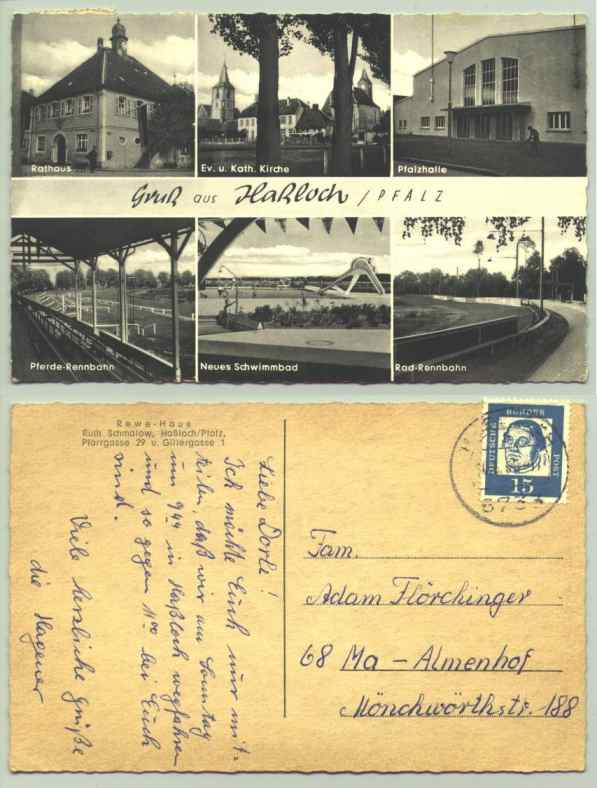 Rathaus
Ev. u. Kath. Kirche
Pfalzhalle
Gruß aus Haßloch / PFALZ
Pferde-Rennbahn
Neues Schwimmbad
Rad-Rennbahn
Rewe-Haus
Ruth Schmalow, Haßloch/Pfalz,
Pfarrgasse 29 u. Gillergasse 1
Liebe Dorle!
Ich möchte Euch nur mit-
teilen, daß wir am Sonntag
um 9 44 in Haßloch wegfahren
und so gegen 11 00 bei Euch
sind.
Viele herzliche Grüße
die Hagener
DEUTSCHE BUNDESPOST
15
673
Fam.
Adam Flörchinger
68 Ma - Almenhof
Mönchwörthstr. 188